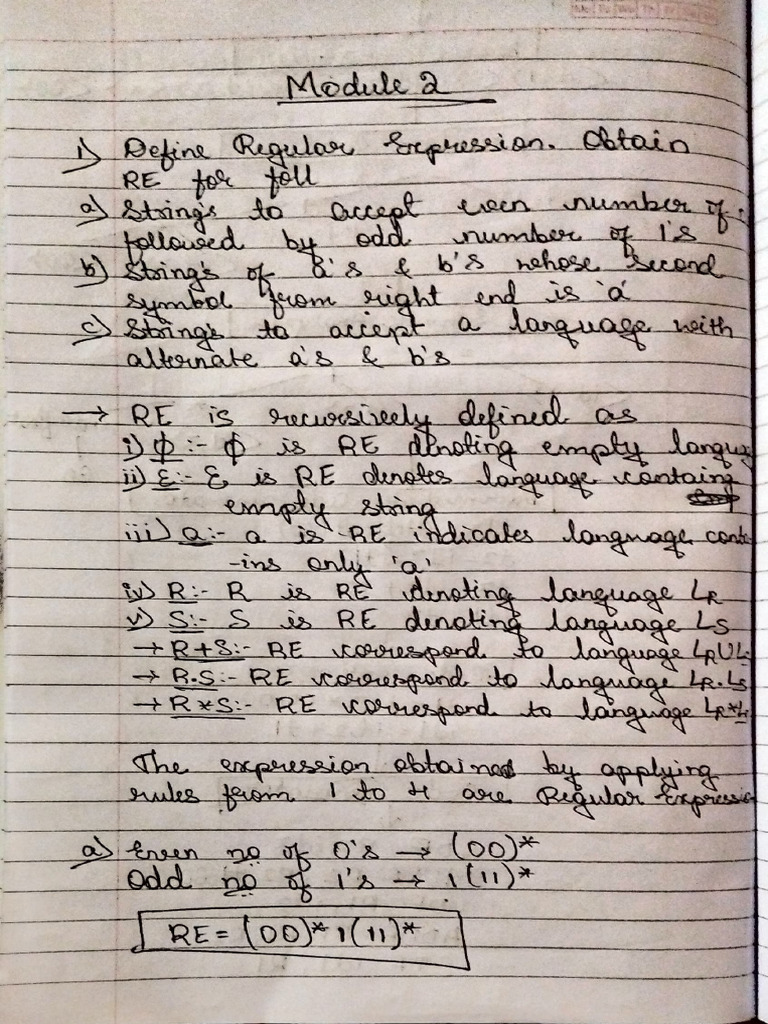 Module 2
1) Define Regular Expression. Obtain
RE for foll
a) Strings to accept even number of
followed by odd number of 1's
b) Strings of a's & b's whose second
symbol from right end is 'a'
c) Strings to accept a language with
alternate a's & b's
→ RE is recursively defined as
i) Φ :- Φ is RE denoting empty langu
ii) ε :- ε is RE denotes language containg
empty string
iii) a :- a is RE indicates language conta
-ins only 'a'
iv) R :- R is RE denoting language LR
v) S :- S is RE denoting language LS
→ R+S :- RE correspond to language LRUL
→ R.S :- RE correspond to language LR.LS
→ R*S :- RE correspond to language LR*L
The expression obtained by applying
rules from 1 to 4 are Regular Expressio
a) Even no of 0's → (00)*
Odd no of 1's → 1(11)*
RE = (00)* 1(11)*